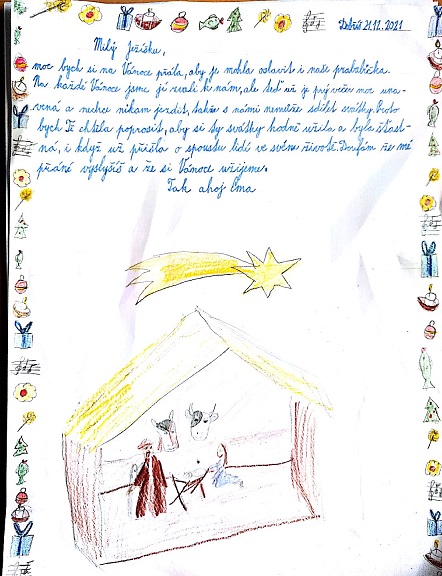 Dobříš 21.12. 2021
Milý Ježíšku,
moc bych si na Vánoce přála, aby je mohla oslavit i naše prababička.
Na každé Vánoce jsme ji zvali k nám, ale teď už je prý večer moc una-
vená a nechce nikam jezdit, takže s námi nemůže sdílet svátky. Proto
bych Tě chtěla poprosit, aby si ty svátky hodně užila a byla šťast-
ná, i když už přišla o spoustu lidí ve svém životě. Doufám že mé
přání vyslyšíš a že si Vánoce užijeme.
Tak ahoj Ema